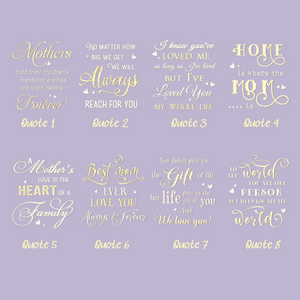 Mothers
hold their children's
hands for a while
but their hearts
Forever
Quote 1
No matter how
big we get
we will
Always
reach for you
Quote 2
I know you've
loved me
as long as I've lived
but I've
Loved You
my whole life
Quote 3
HOME
is where the
MOM
is
Quote 4
Mother's
love is the
heart of a
Family
Quote 5
Best mom
ever
love you
Always & Forever
Quote 6
You didn't give me
the Gift of life
but life gave me
the Gift of you
We love you!
Quote 7
To the
world
you are one
person
but to us you are the
world
Quote 8